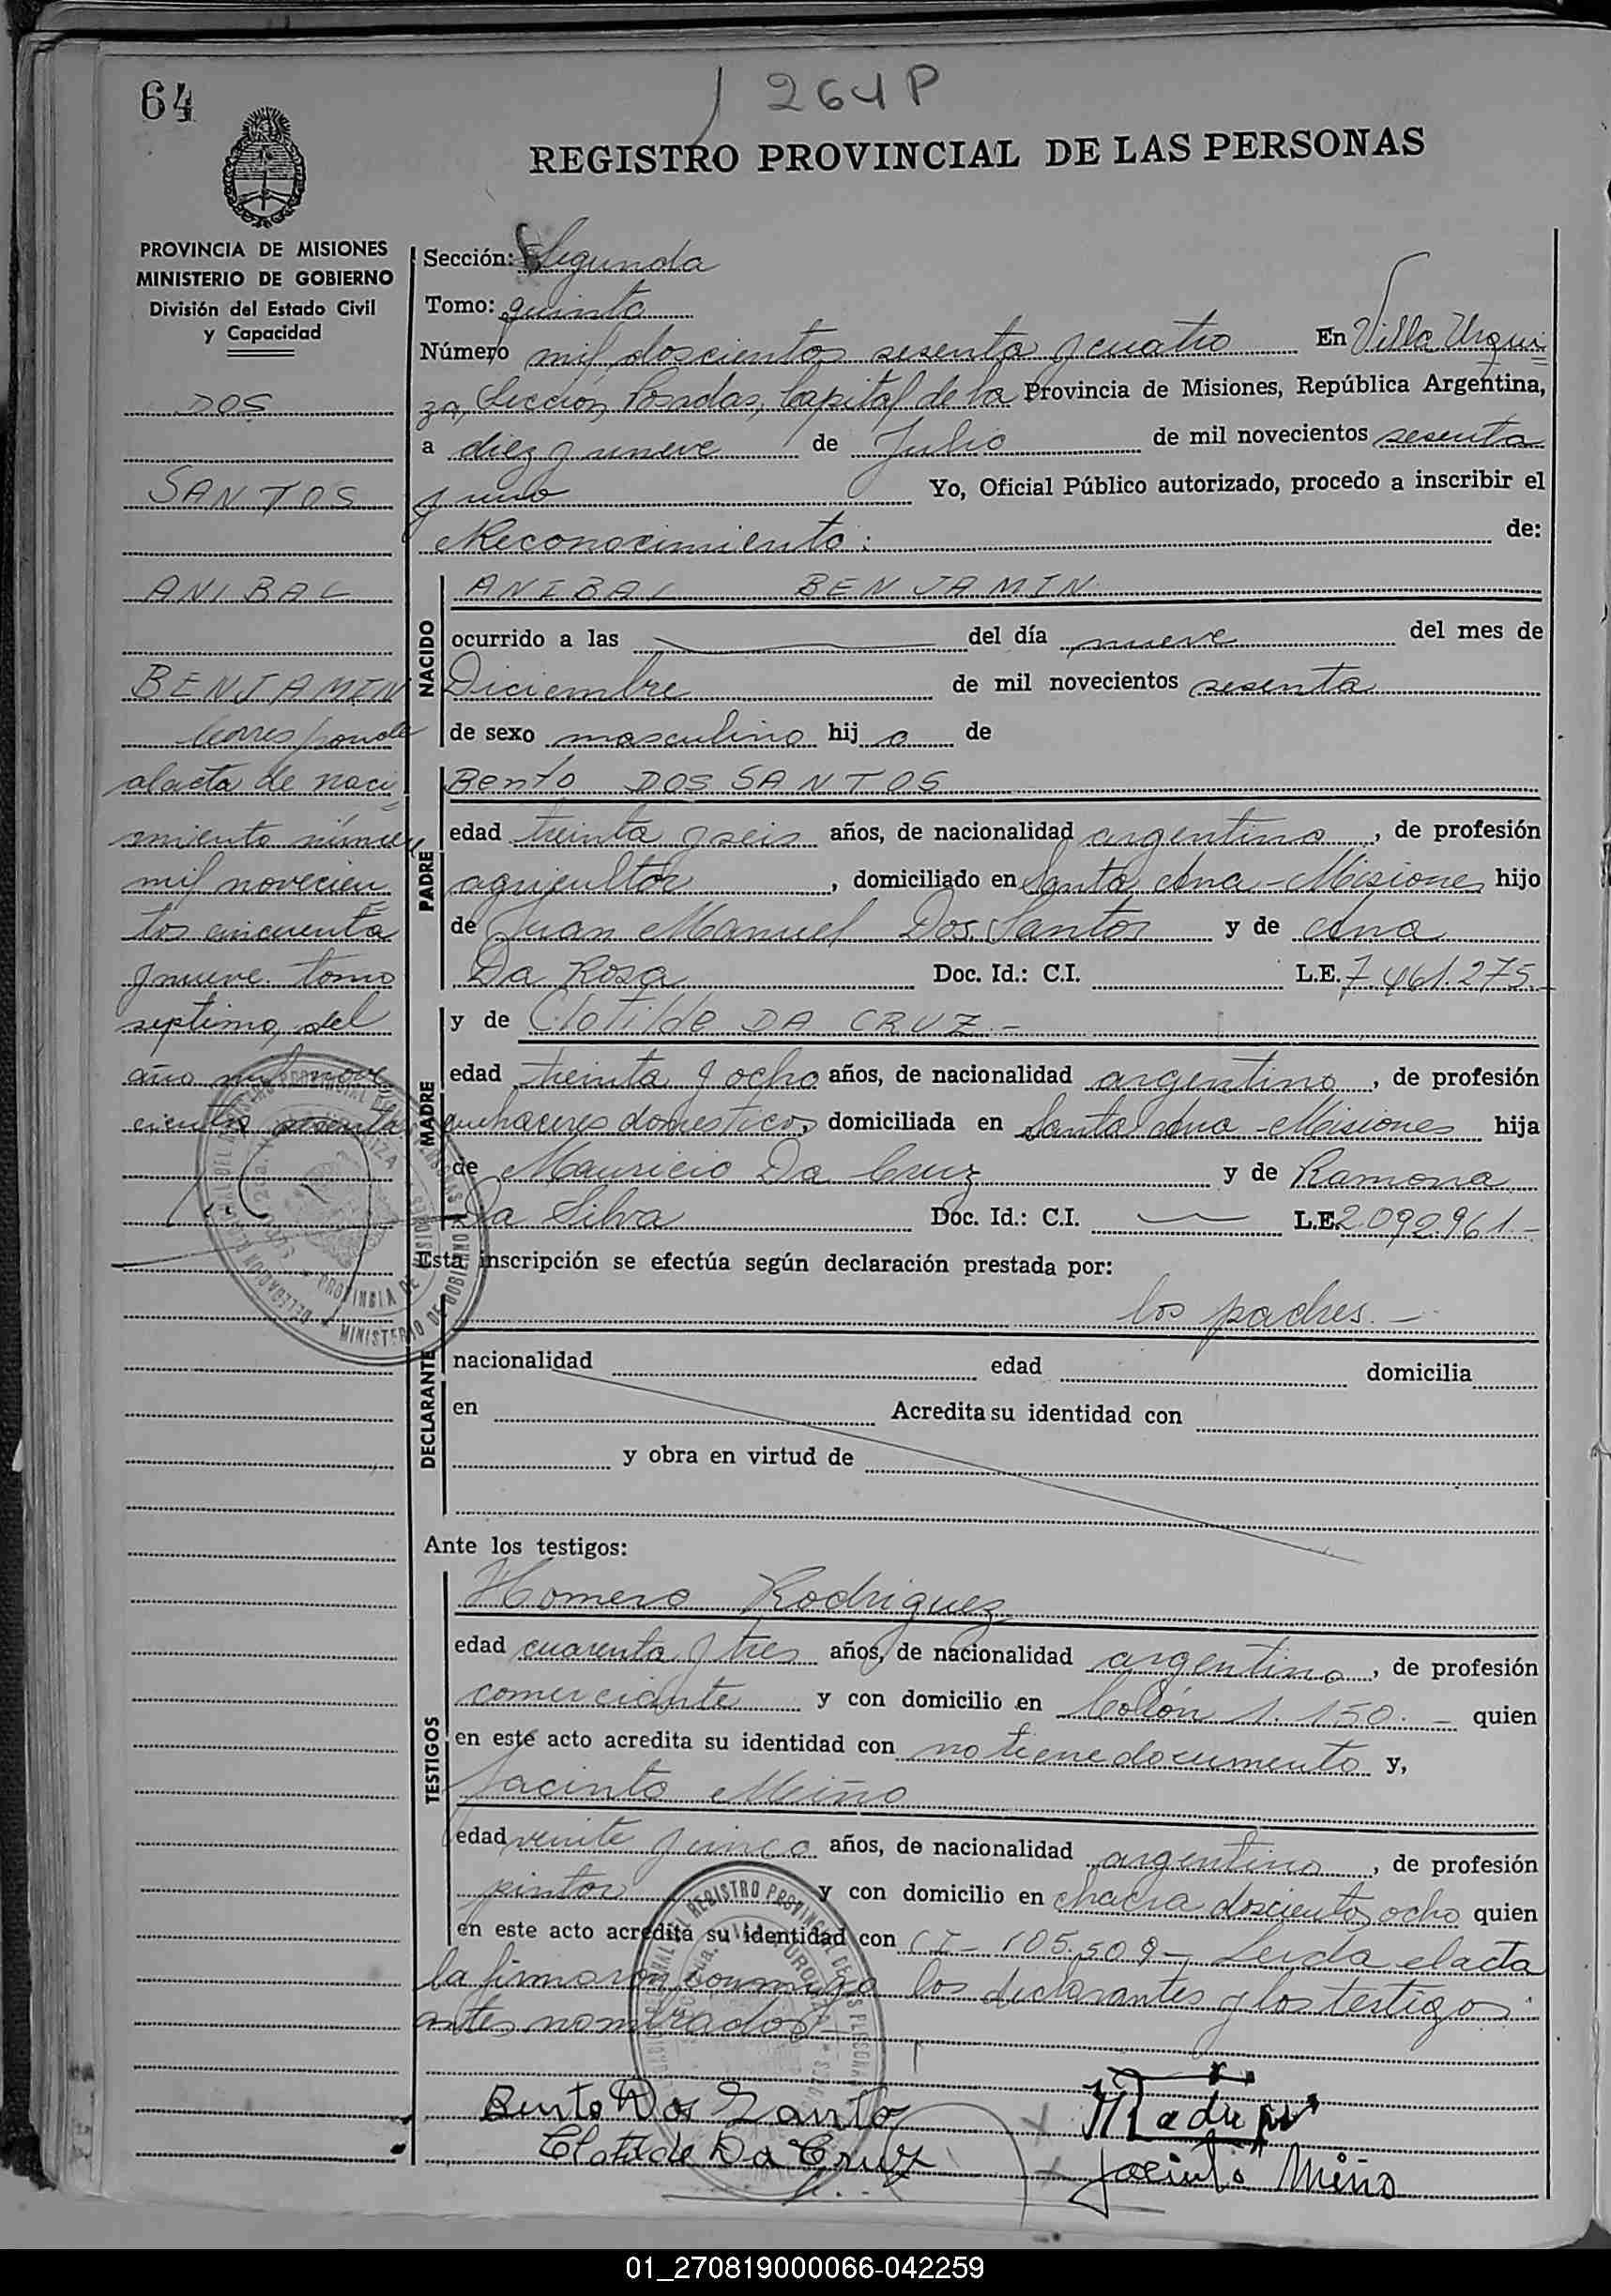 64
1264P
REGISTRO PROVINCIAL DE LAS PERSONAS
PROVINCIA DE MISIONES
MINISTERIO DE GOBIERNO
División del Estado Civil
y Capacidad
DOS
SANTOS
ANIBAL
BENJAMIN
Corresponde
al acta de naci
miento número
mil novecien
tos cincuenta
y nueve tomo
septimo del
año mil nove
cientos sesenta
Sección: Segunda
Tomo: quinto
Número mil doscientos sesenta y cuatro En Villa Urqui
za, Sección Posadas, Capital de la Provincia de Misiones, República Argentina,
a diez y nueve de Julio de mil novecientos sesenta
y uno Yo, Oficial Público autorizado, procedo a inscribir el
Reconocimiento: de:
NACIDO
ANIBAL BENJAMIN
ocurrido a las del día nueve del mes de
Diciembre de mil novecientos sesenta
de sexo masculino hij o de
PADRE
Bento DOS SANTOS
edad treinta y seis años, de nacionalidad argentino, de profesión
agricultor, domiciliado en Santa Ana - Misiones hijo
de Juan Manuel Dos Santos y de Ana
Da Rosa Doc. Id.: C.I. L.E. 7.461.275.-
MADRE
y de Clotilde DA CRUZ.-
edad treinta y ocho años, de nacionalidad argentina, de profesión
quehaceres domesticos, domiciliada en Santa Ana - Misiones hija
de Mauricio Da Cruz y de Ramona
Da Silva Doc. Id.: C.I. L.E. 2.092.961.-
Esta inscripción se efectúa según declaración prestada por:
DECLARANTE
los padres.-
nacionalidad edad domicilia
en Acredita su identidad con
y obra en virtud de
Ante los testigos:
TESTIGOS
Homero Rodriguez
edad cuarenta y tres años, de nacionalidad argentino, de profesión
comerciante y con domicilio en Colón 1.150.- quien
en este acto acredita su identidad con no tiene documento y,
Jacinto Miño
edad veinte y cinco años, de nacionalidad argentino, de profesión
pintor y con domicilio en chacra doscientos ocho quien
en este acto acredita su identidad con CI - 105.509 - Leida el acta
la firmaron conmigo los declarantes y los testigos
antes nombrados.-
Bento Dos Santo
Clotilde Da Cruz
Jacinto Miño
01_270819000066-042259